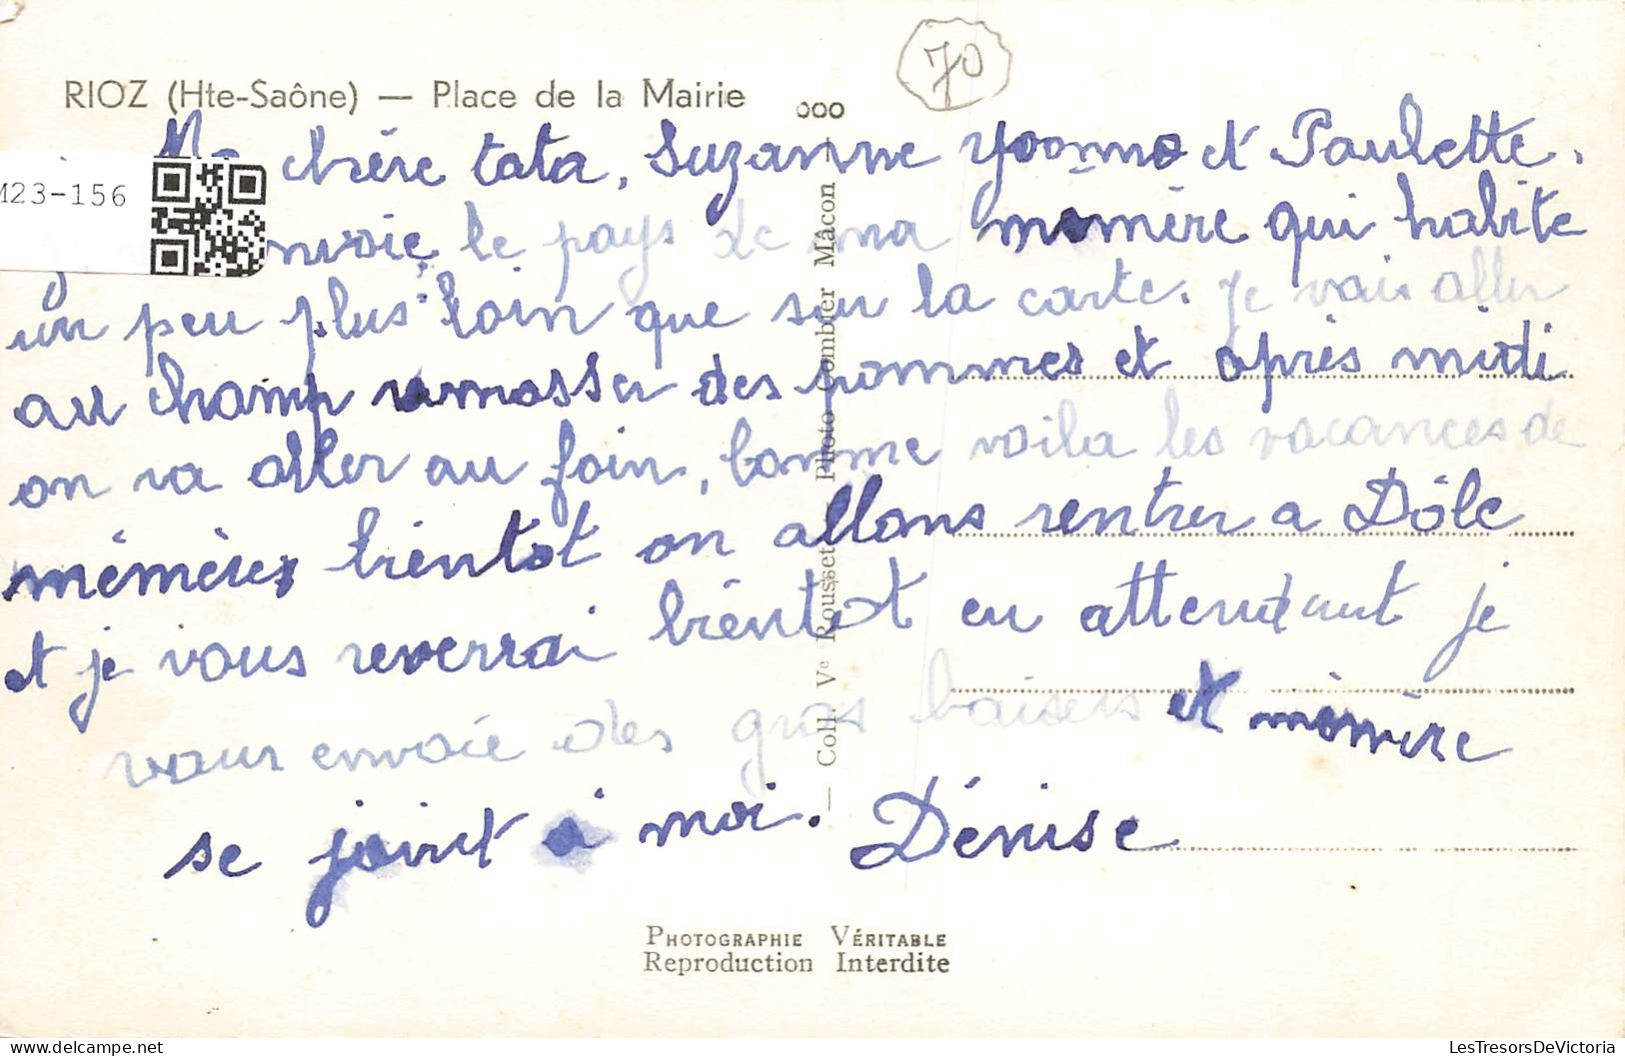 70
RIOZ (Hte-Saône) — Place de la Mairie
Ma chère tata, Suzanne Yvonne et Paulette.
M23-156
envoie le pays de ma mémère qui habite
un peu plus loin que sur la carte. Je vais aller
au champ ramasser des pommes et après midi
on va aller au foin, comme voila les vacances de
mémères bientot on allons rentrer a Dôle
et je vous reverrai bientot en attendant je
vous envoie des gros baisers et mémère
se joint à moi. Dénise
— Coll. Vᵉ Rousset — Photo Combier Mâcon —
PHOTOGRAPHIE VÉRITABLE
Reproduction Interdite
LesTresorsDeVictoria
https://www.delcampe.net